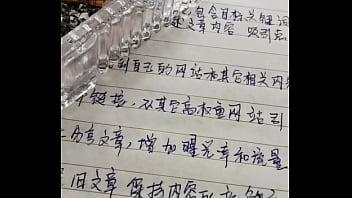 包含目标关键词
文章内容 吸引点
到自己的网站和其它相关内
链接，从其它高权重网站引
分享文章，增加曝光率和流量
旧文章 保持内容